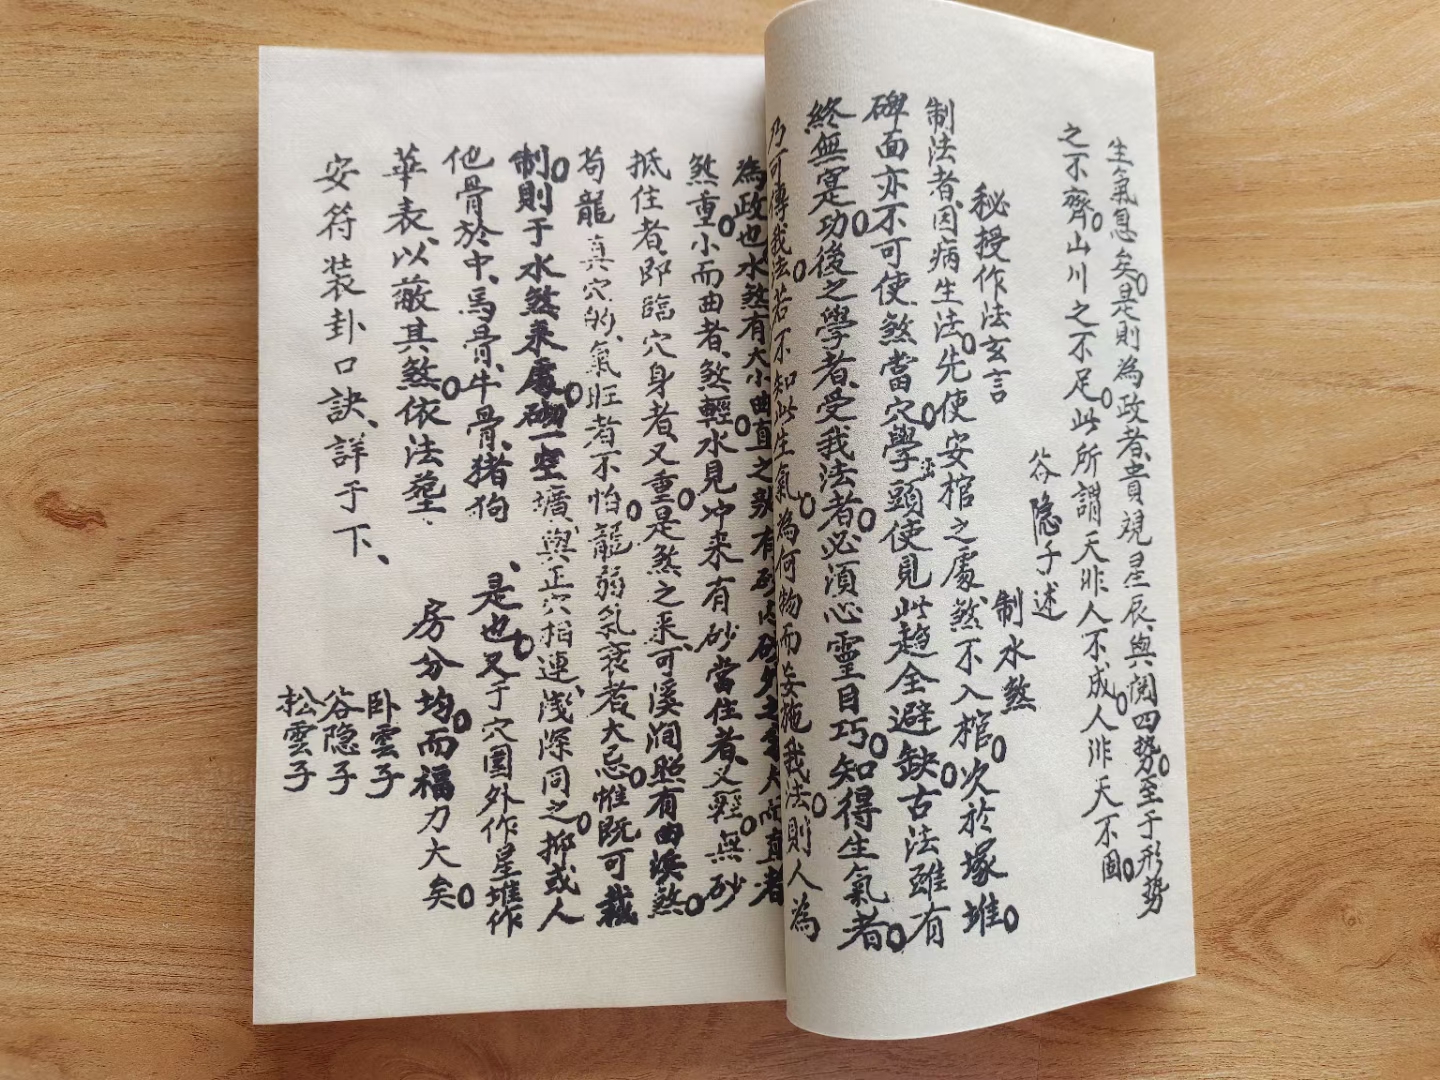 生氣息矣是則為政者貴視星辰與閱四勢至于形勢
之不齊山川之不足此所謂天非人不成人非天不因
谷隐子述
秘授作法玄言
制水煞
制法者因病生法先使安棺之處煞不入棺次於塚堆
碑面亦不可使煞當穴學頭使見此趋全避缺古法雖有
終無寔功後之學者受我法者必須心靈目巧知得生氣者
乃可傳我法若不知此生氣為何物而妄施我法則人為
為政也水煞有大小曲直之別有砂内砂外之大而直者
煞重小而曲者煞輕水見冲来有砂當住者又輕無砂
抵住者即臨穴身者又重是煞之来可溪澗照有曲溪煞
苟龍真穴的氣旺者不怕龍弱氣衰者大忌惟既可裁
制則于水煞来處砌一空壙與正穴相連浅深同之抑或人
他骨於中馬骨牛骨猪狗是也又于穴圍外作星堆作
華表以敵其煞依法塟房分均而福力大矣
安符装卦口訣詳于下
卧雲子
谷隐子
松雲子